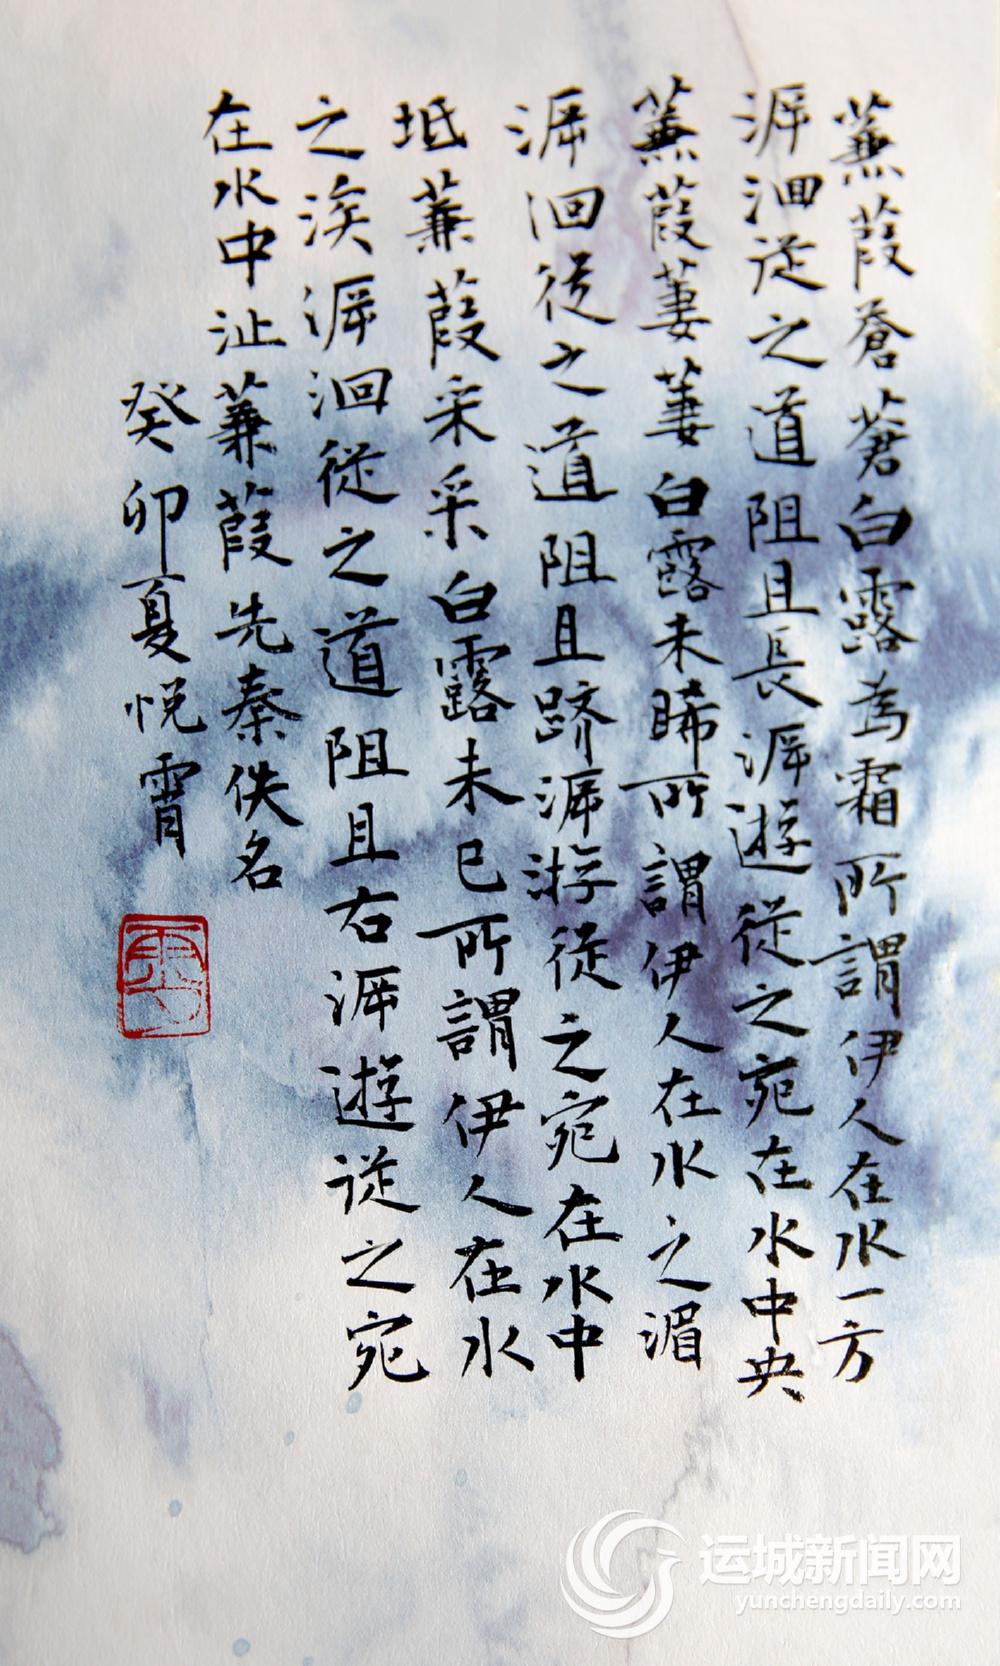 蒹葭蒼蒼白露為霜所謂伊人在水一方
溯洄從之道阻且長溯遊從之宛在水中央
蒹葭萋萋白露未晞所謂伊人在水之湄
溯洄從之道阻且跻溯游從之宛在水中
坻蒹葭采采白露未已所謂伊人在水
之涘溯洄從之道阻且右溯遊從之宛
在水中沚蒹葭先秦佚名
癸卯夏悦霄
运城新闻网
yunchengdaily.com